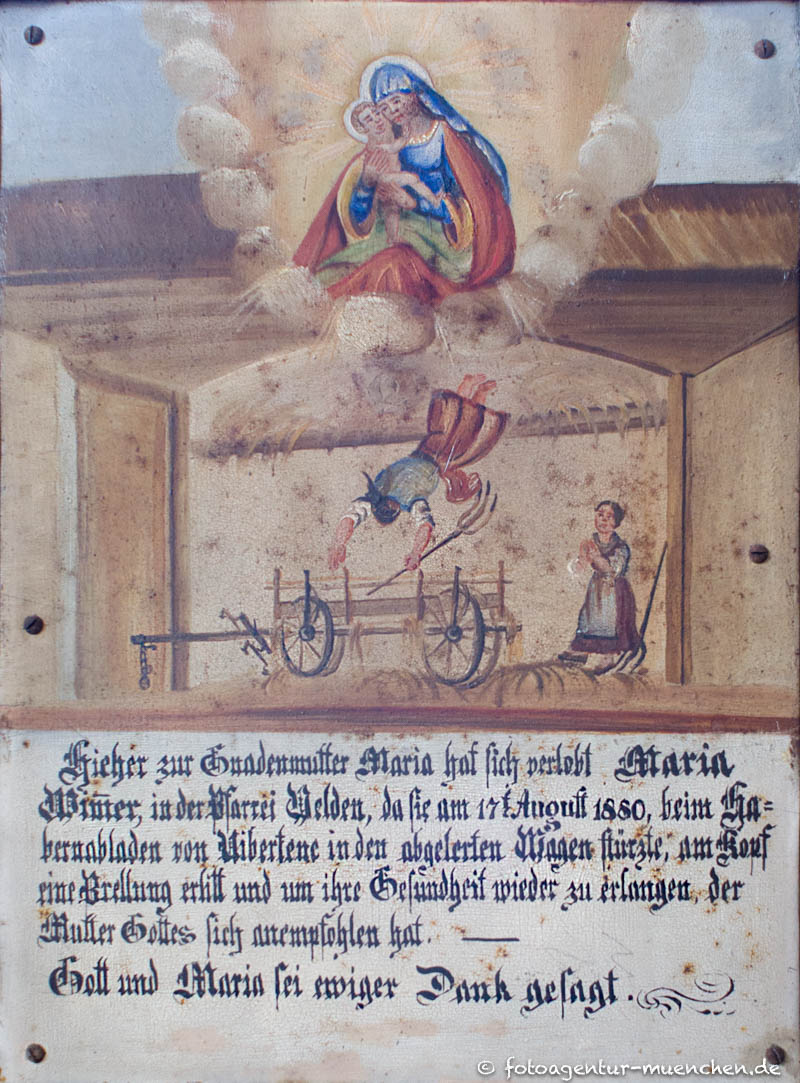 Hieher zur Gnadenmutter Maria hat sich verlobt Maria
Wim̅er, in der Pfarrei Velden, da sie am 17t. August 1880, beim Ha=
bernabladen von in den abgelerten Wagen stürzte, am Kopf
eine Prellung erlitt und um ihre Gesundheit wieder zu erlangen, der
Mutter Gottes sich anempfohlen hat. —
Gott und Maria sei ewiger Dank gesagt.
© fotoagentur-muenchen.de